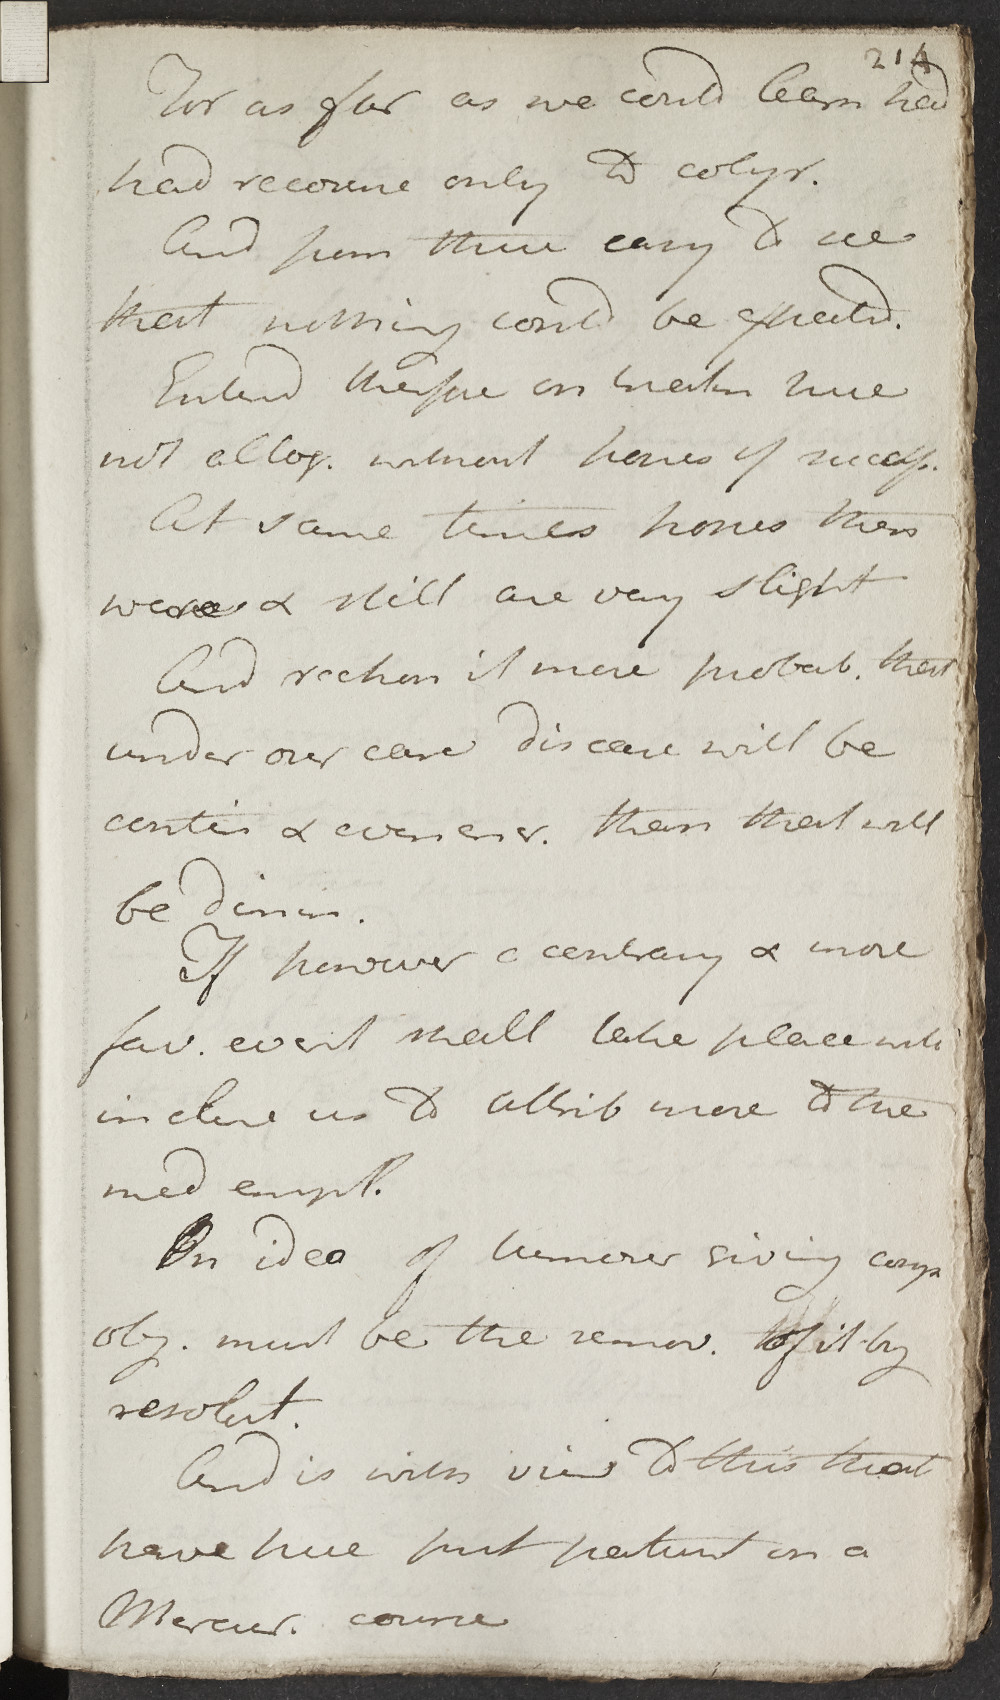 214
For as far as we could learn had
had recourse only to colyr.
And from these easy to see
that nothing could be effected.
Enterd therefore on treatm here
not altog. without hopes of success.
At same times hopes then
were & still are very slight
And reckon it more probab. that
under our care disease will be
contin & even incr. than that will
be dimin.
If however a contrary & more
fav. event shall take place will
incline us to attrib more to the
med empl.
On idea of tumour giving comp
obj. must be the remov. of it by
resolut.
And is with view to this that
have here put patient on a
Mercur. course